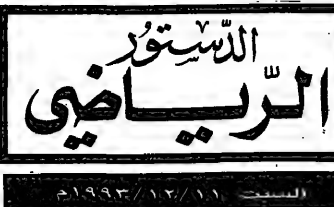 الدّستور
الرّياضي
السبت ١٩٩٣/١٢/١١م